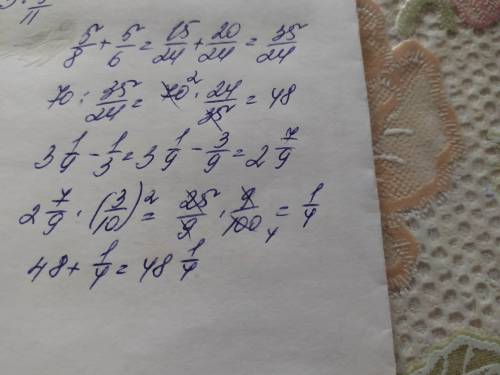 5/8 + 5/6 = 15/24 + 20/24 = 35/24
70 : 35/24 = 70² · 24/35 = 48
3 1/9 - 1/3 = 3 1/9 - 3/9 = 2 7/9
2 7/9 · (3/10)² = 25/9 · 9/100 4 = 1/4
48 + 1/4 = 48 1/4